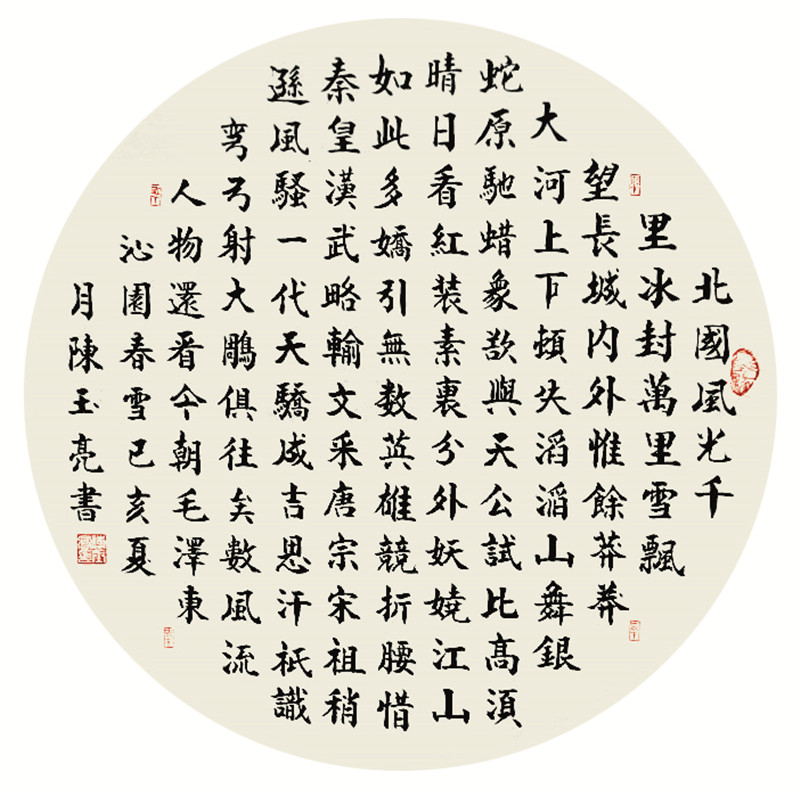 北國風光千
里冰封萬里雪飄
望長城内外惟餘莽莽
大河上下頓失滔滔山舞銀
蛇原馳蜡象欲與天公試比高湏
晴日看紅装素裹分外妖嬈江山
如此多嬌引無数英雄競折腰惜
秦皇漢武略輸文采唐宗宋祖稍
遜風騷一代天驕成吉思汗祇識
弯弓射大鵰俱往矣數風流
人物還看今朝毛澤東
沁園春雪己亥夏
月陳玉亮書